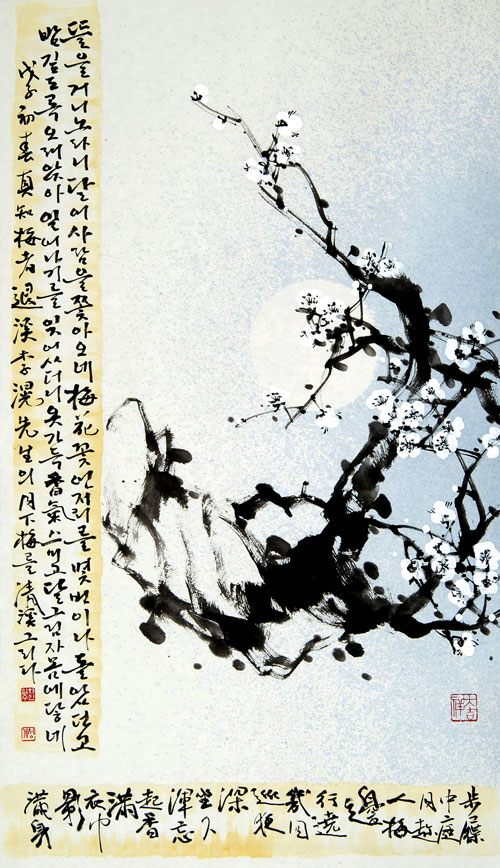 뜰을 거니노라니 달이 사람을 쫓아오네 梅花꽃 언저리를 몇번이나 돌았던고
밤깊도록 오래앉아 일어나기를 잊었더니 옷가득 香氣스미고 달그림자 몸에 닿네
戊子初春真知梅者退溪李滉先生의 月下梅를 淸溪그리다
大吉祥
步屧
中庭
月趁
人梅
邊
行遶
幾回
巡夜
深
坐久
渾忘
起香
滿
衣巾
影
滿身